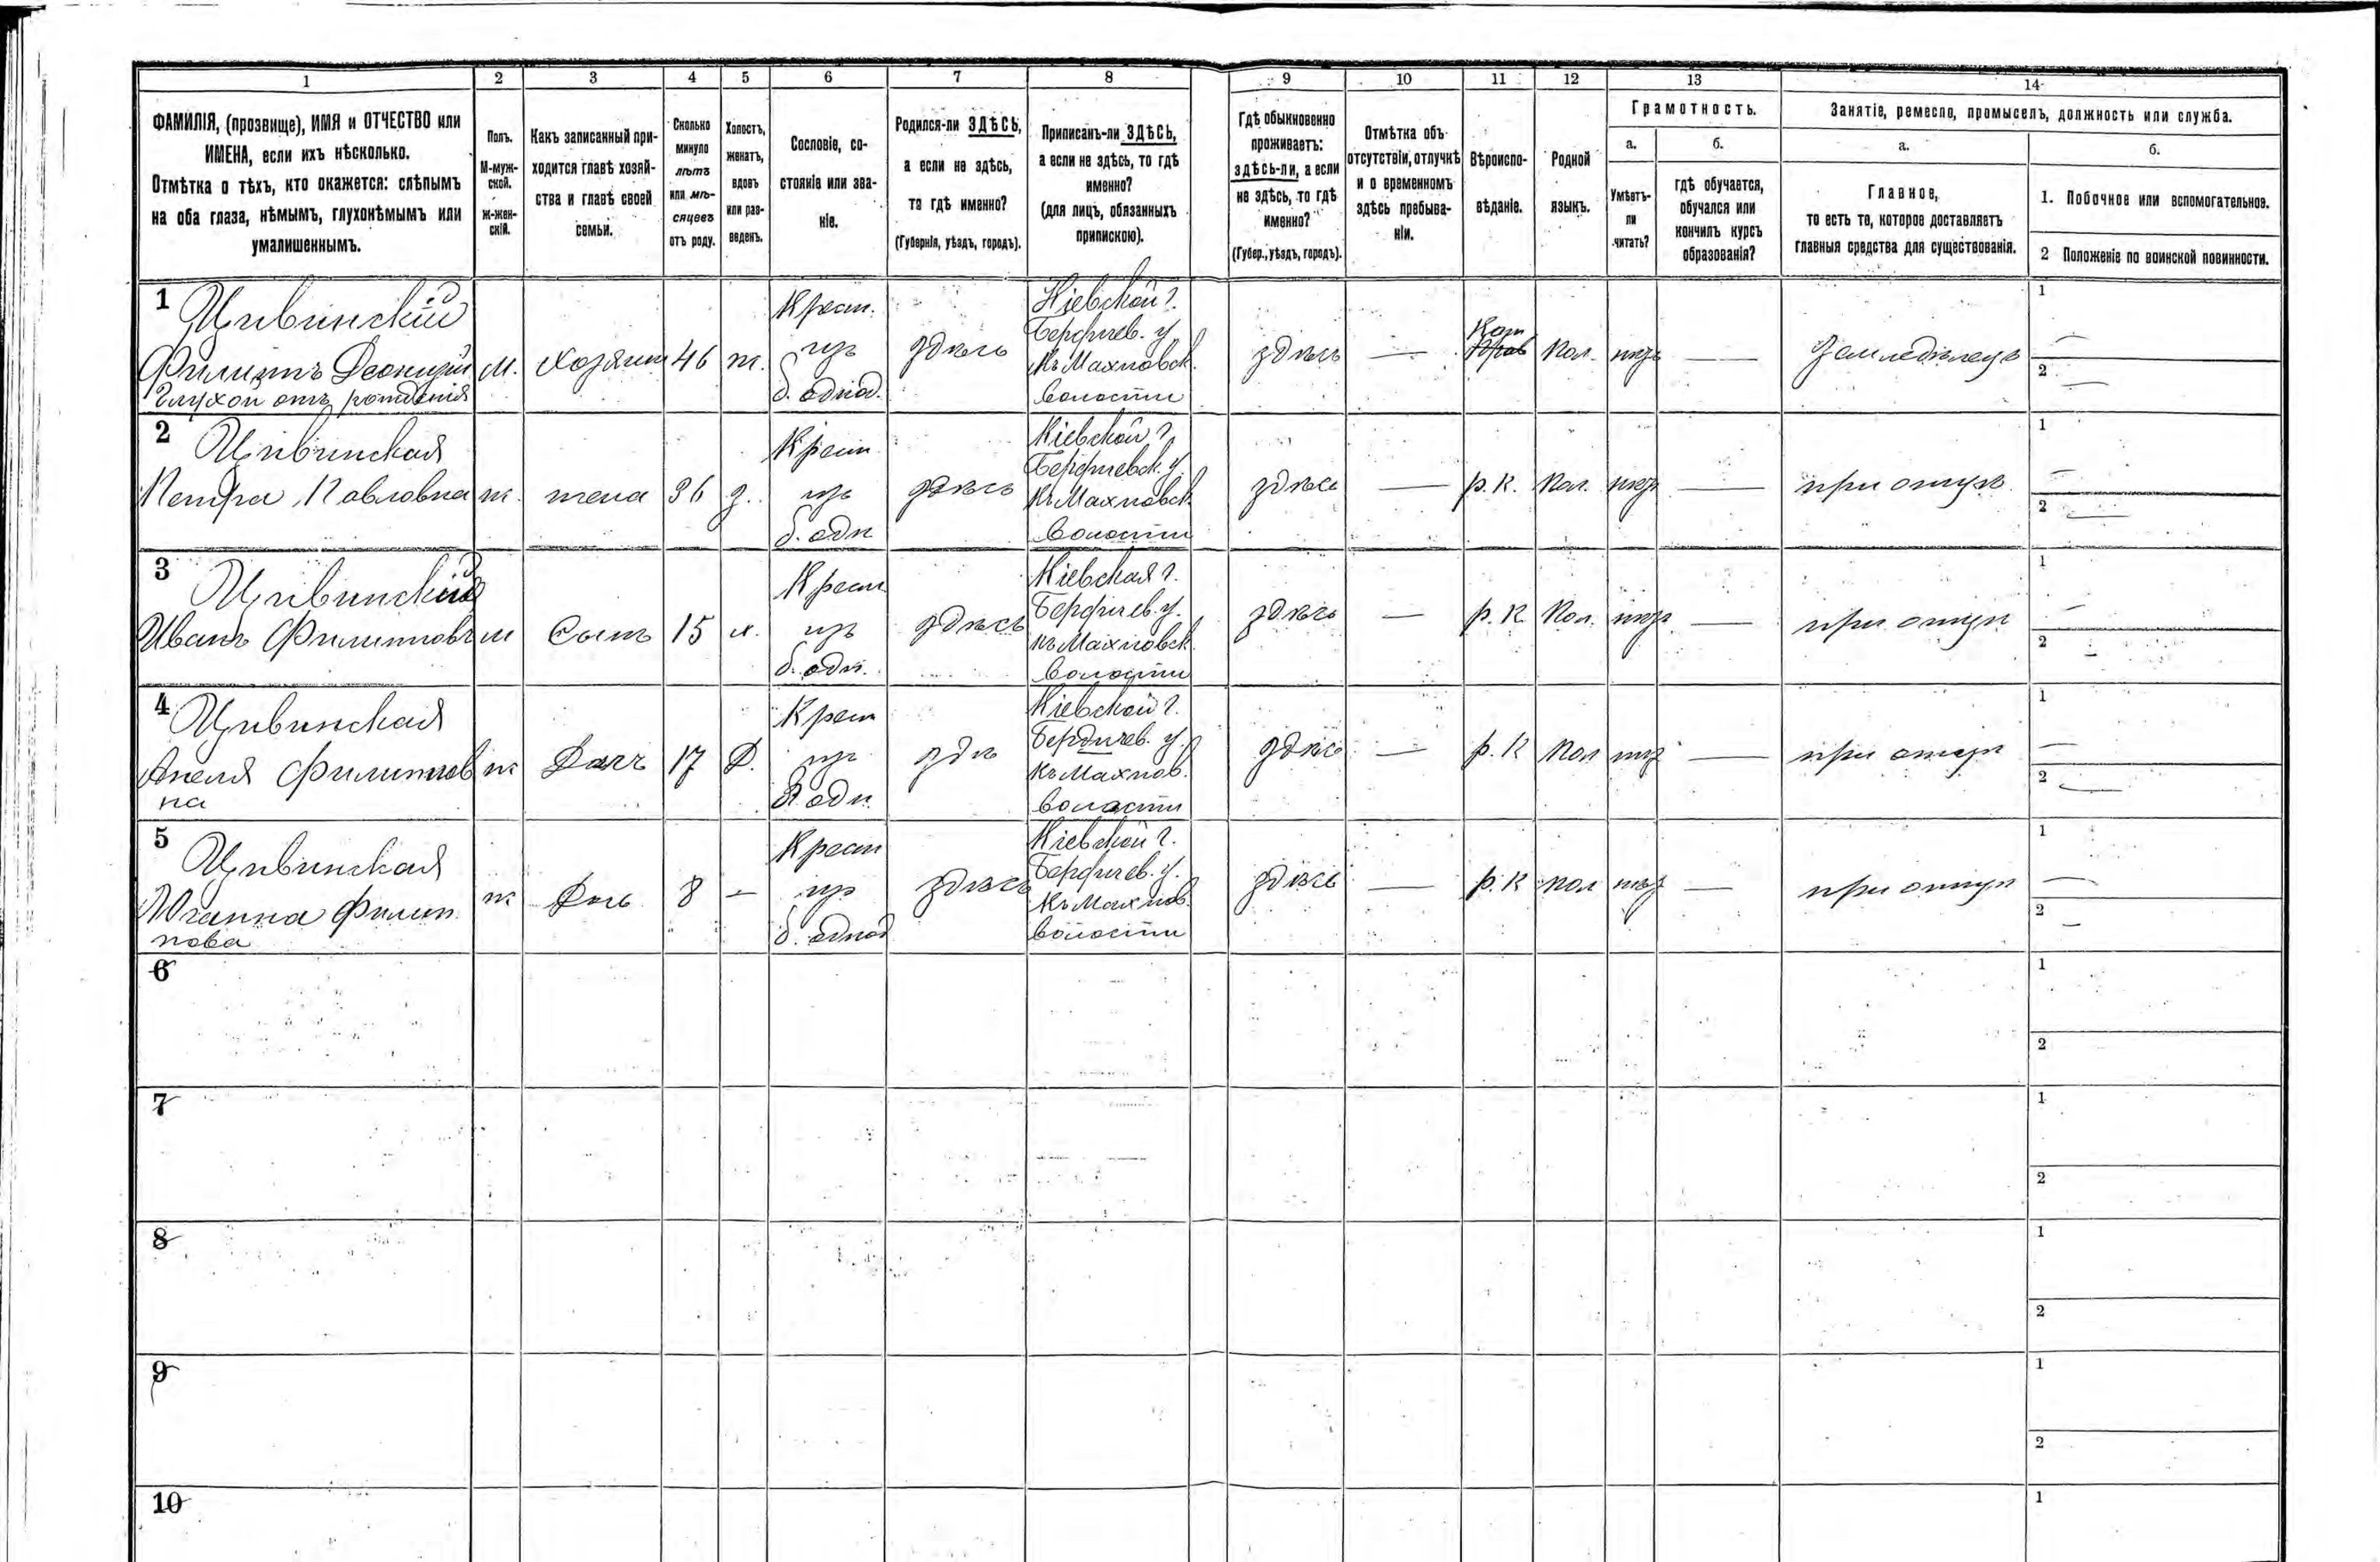 1 2 3 4 5 6 7 8 9 10 11 12 13 14
ФАМИЛІЯ, (прозвище), ИМЯ и ОТЧЕСТВО или
ИМЕНА, если ихъ нѣсколько.
Отмѣтка о тѣхъ, кто окажется: слѣпымъ
на оба глаза, нѣмымъ, глухонѣмымъ или
умалишеннымъ.
Полъ.
М-муж-
ской.
Ж-жен-
скій.
Какъ записанный при-
ходится главѣ хозяй-
ства и главѣ своей
семьи.
Сколько
минуло
лѣтъ
или мѣ-
сяцевъ
отъ роду.
Холостъ,
женатъ,
вдовъ
или раз-
веденъ.
Сословіе, со-
стояніе или зва-
ніе.
Родился-ли ЗДѢСЬ,
а если не здѣсь,
то гдѣ именно?
(Губернія, уѣздъ, городъ).
Приписанъ-ли ЗДѢСЬ,
а если не здѣсь, то гдѣ
именно?
(для лицъ, обязанныхъ
припискою).
Гдѣ обыкновенно
проживаетъ:
здѣсь-ли, а если
не здѣсь, то гдѣ
именно?
(Губер., уѣздъ, городъ).
Отмѣтка объ
отсутствіи, отлучкѣ
и о временномъ
здѣсь пребыва-
ніи.
Вѣроиспо-
вѣданіе.
Родной
языкъ.
Грамотность.
а.
Умѣетъ-
ли
читать?
б.
гдѣ обучается,
обучался или
кончилъ курсъ
образованія?
Занятіе, ремесло, промыселъ, должность или служба.
а.
Главное,
то есть то, которое доставляетъ
главныя средства для существованія.
б.
1. Побочное или вспомогательное.
2 Положеніе по воинской повинности.
1
Цивинскій
Филиппъ
Глухой отъ рожденія
м.
хозяин
46
ж.
Крест.
изъ
б. однод.
здѣсь
Кіевской г.
Бердичев. у.
Къ Махновск.
волости
здѣсь
—
Кат
Прав
Пол.
нѣтъ
—
Земледѣлецъ
1 —
2 —
2
Цивинская
Петра Павловна
ж.
жена
36
з.
Крест
изъ
б. одн
здѣсь
Кіевской г.
Бердичевск. у.
Къ Махновск.
волости
здѣсь
—
р. К.
Пол.
нѣтъ
—
при отцѣ
1 —
2 —
3
Цивинскій
Иванъ Филипповъ
м
Сынъ
15
х.
Крест
изъ
б. одн.
здѣсь
Кіевская г.
Бердичев. у.
къ Махновск.
волости
здѣсь
—
р. К.
Пол.
нѣтъ
—
при отцѣ
1 —
2 —
4
Цивинская
Анеля Филиппов
на
ж
Дочь
17
Д.
Крест
изъ
б одн.
здѣ
Кіевской г.
Бердичев. у.
Къ Махнов.
волости
здѣсь
—
р. К
Пол
нѣтъ
—
при отцѣ
1 —
2 —
5
Цивинская
Юганна Филип
пова
ж
Дочь
8
—
Крест
изъ
б. однод
здѣсь
Кіевской г.
Бердичев. у.
Къ Махнов.
волости
здѣсь
—
р. К
пол
нѣтъ
—
при отцѣ
1 —
2 —
6
1
2
7
1
2
8
1
2
9
1
2
10
1